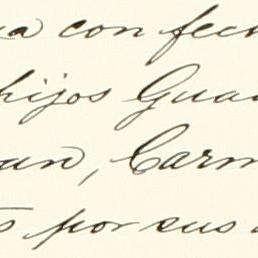 a con fech
hijos Gua
an, Carm
s por sus